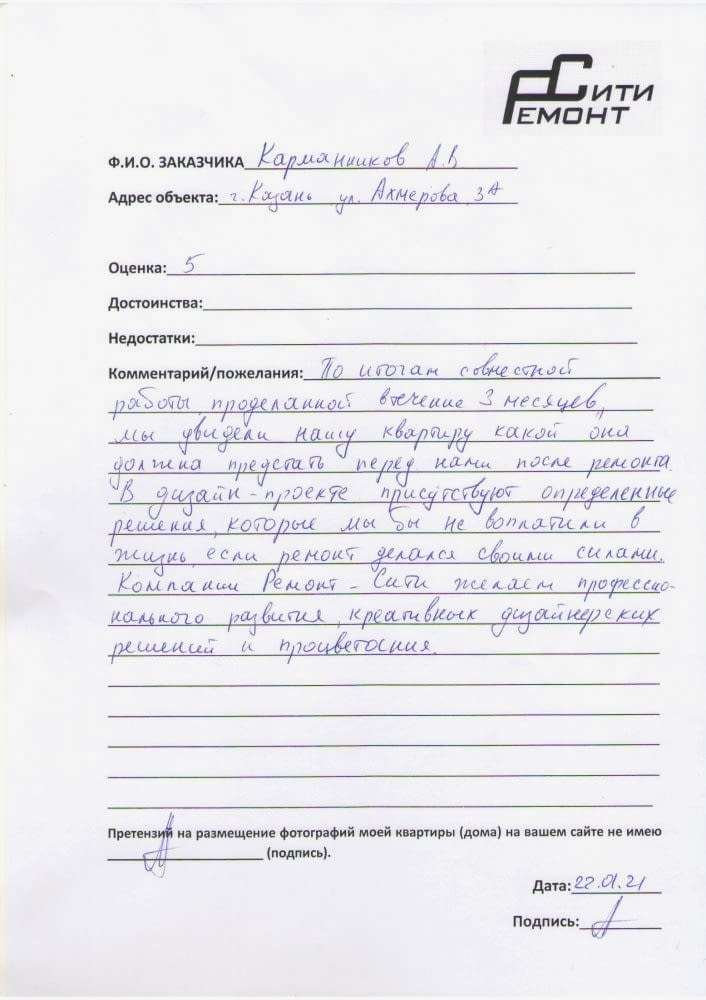 СИТИ
РЕМОНТ
Ф.И.О. ЗАКАЗЧИКА Карманников А.В
Адрес объекта: г. Казань ул. Ахмерова 3А
Оценка: 5
Достоинства:
Недостатки:
Комментарий/пожелания: По итогам совместной
работы, проделанной втечение 3 месяцев,
мы увидели нашу квартиру какой она
должна предстать перед нами после ремонта.
В дизайн-проекте присутствуют определенные
решения, которые мы бы не воплатили в
жизнь, если ремонт делался своими силами.
Компании Ремонт-Сити желаем профессио-
нального развития, креативных дизайнерских
решений и процветания.
Претензий на размещение фотографий моей квартиры (дома) на вашем сайте не имею
(подпись).
Дата: 22.01.21
Подпись: